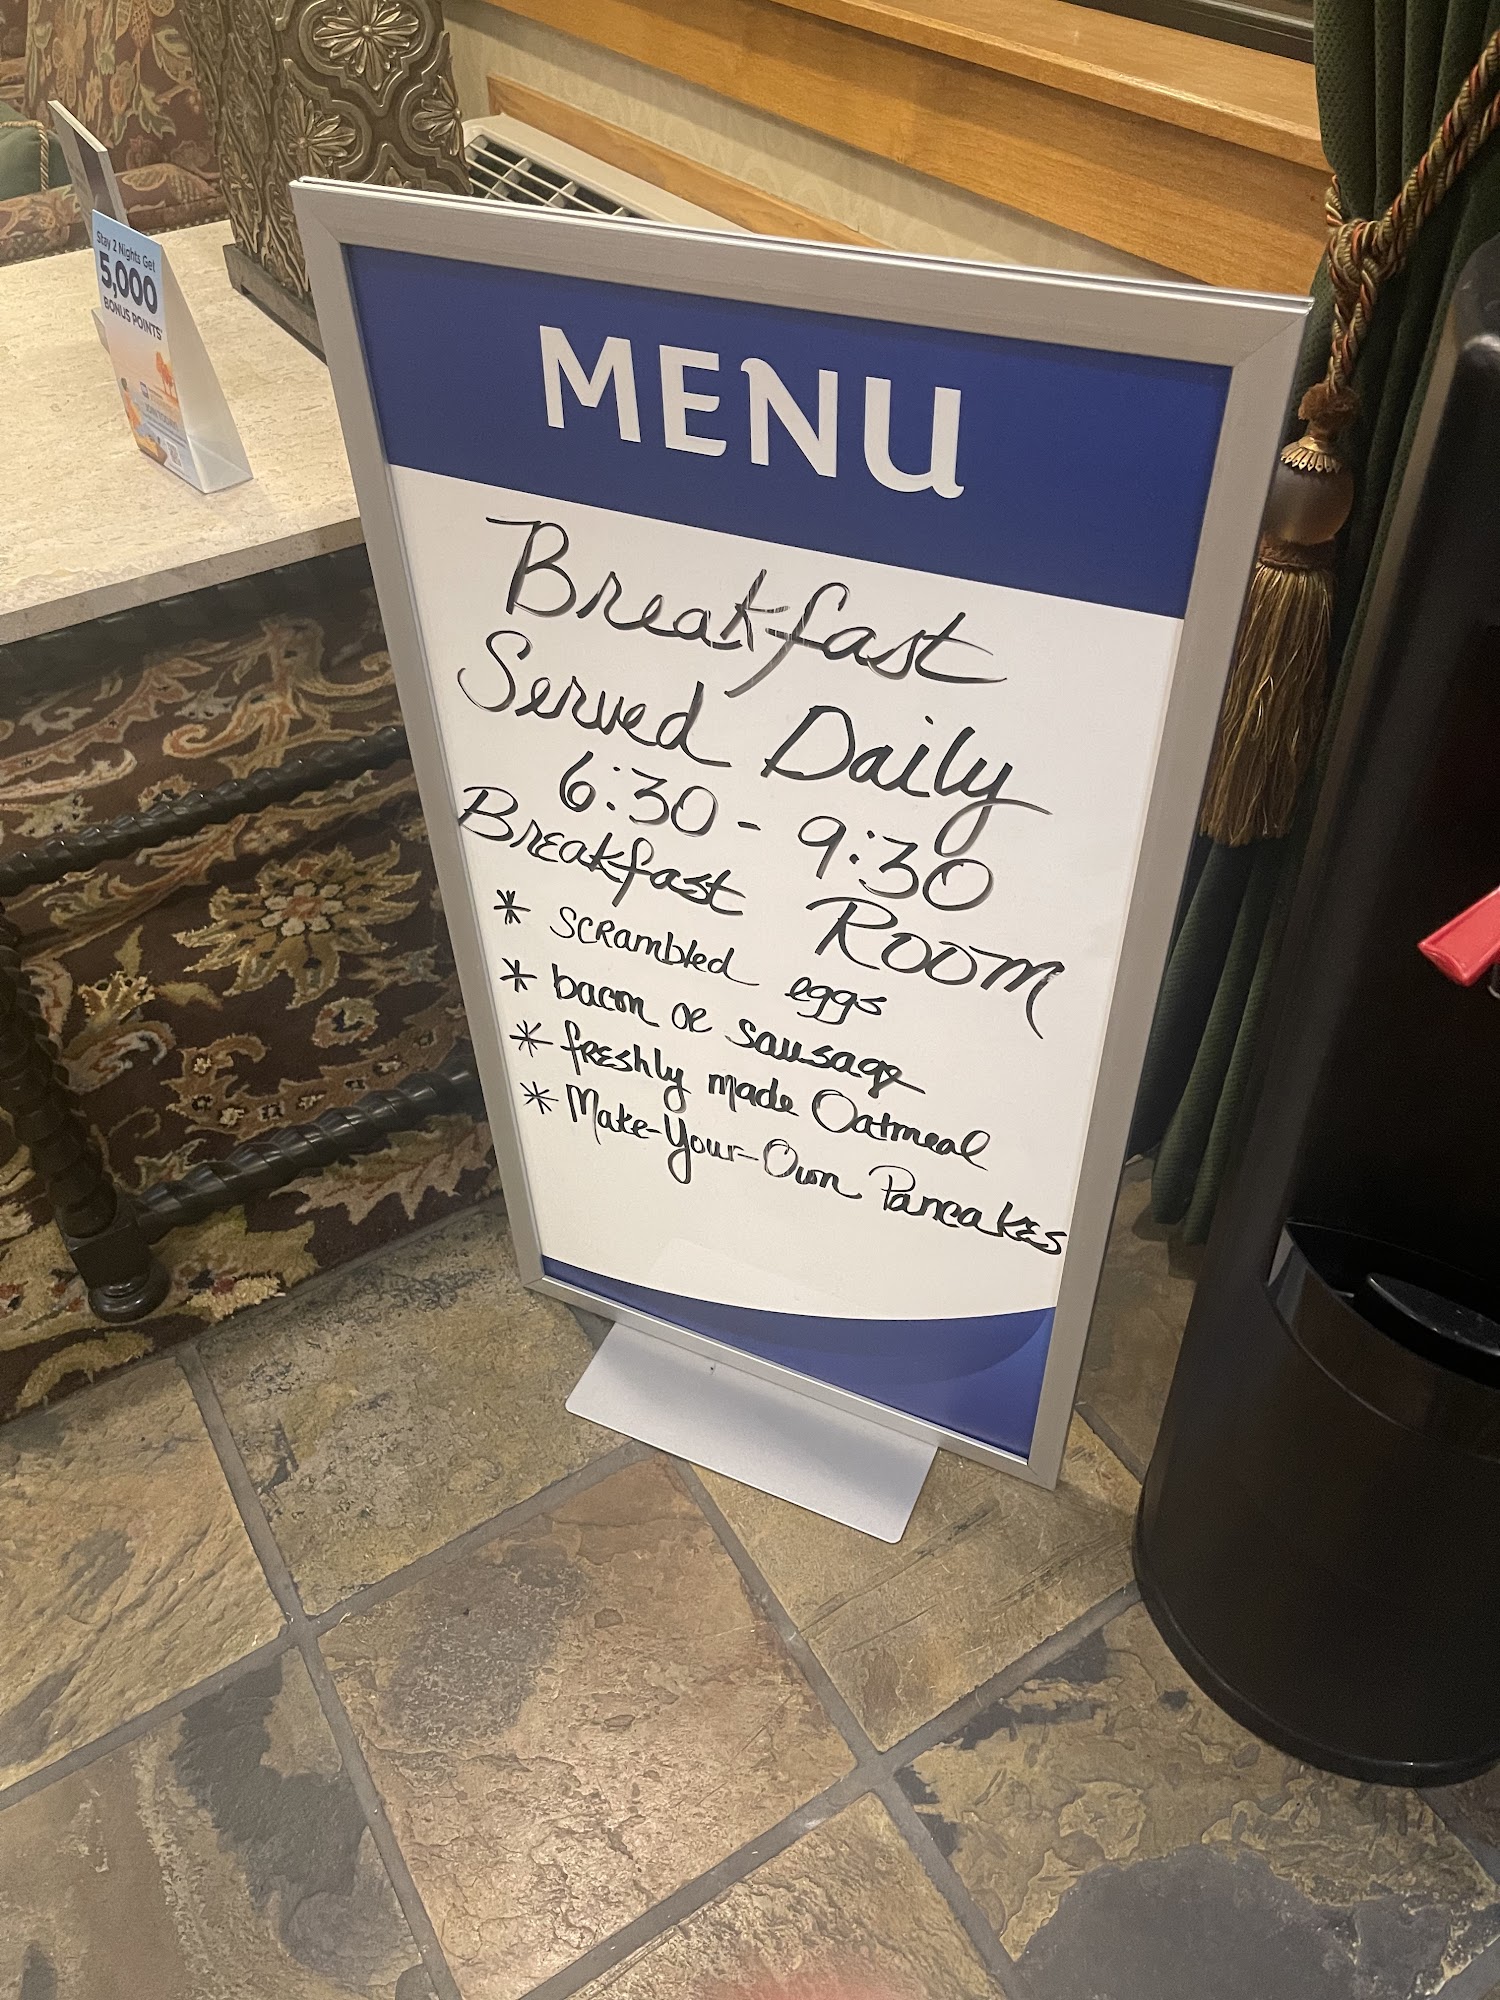 Stay 2 Nights Get
5,000
BONUS POINTS*
MENU
Breakfast
Served Daily
6:30 - 9:30
Breakfast Room
* scrambled eggs
* bacon or sausage
* freshly made Oatmeal
* Make-Your-Own Pancakes